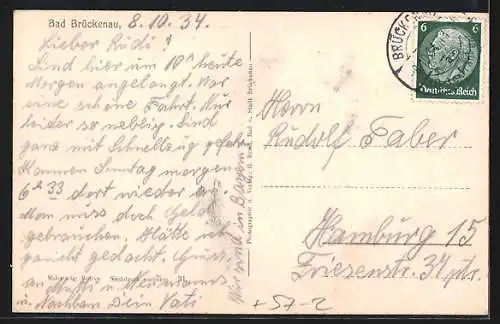 Bad Brückenau, 8.10.34.
Lieber Rudi!
Sind hier um 10 h heute
Morgen angelangt. War
eine schöne Fahrt. Nur
leider so neblig. Sind
ganz mit Schnellzug gefahr
Kommen Sonntag morgen
6 33 dort wieder an
Man muss doch Geld
gebrauchen. Hätte ich
garnicht gedacht. Gruss
an Mutti u.
u. Nachbarn Dein Vati
Wir sind in Bayern
Photographie u. Verlag: Bad u. Stadt Brückenau
Nachdruck verboten
BRÜCKENAU
6 6
Deutsches Reich
Herrn
Rudolf Faber
Hamburg 15
Friesenstr. 34 ptr.
+57-2